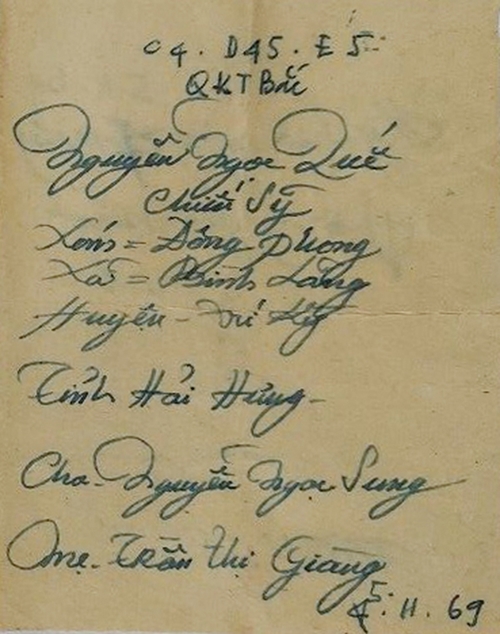 C4. D45. E5
QKT Bắc
Nguyễn Ngọc Quế
Chiến Sỹ
Xóm = Đông Phong
Xã = Bình Lãng
Huyện - Tứ Kỳ
Tỉnh Hải Hưng -
Cha - Nguyễn Ngọc Sung
Mẹ - Trần Thị Giàng
5. 11. 69